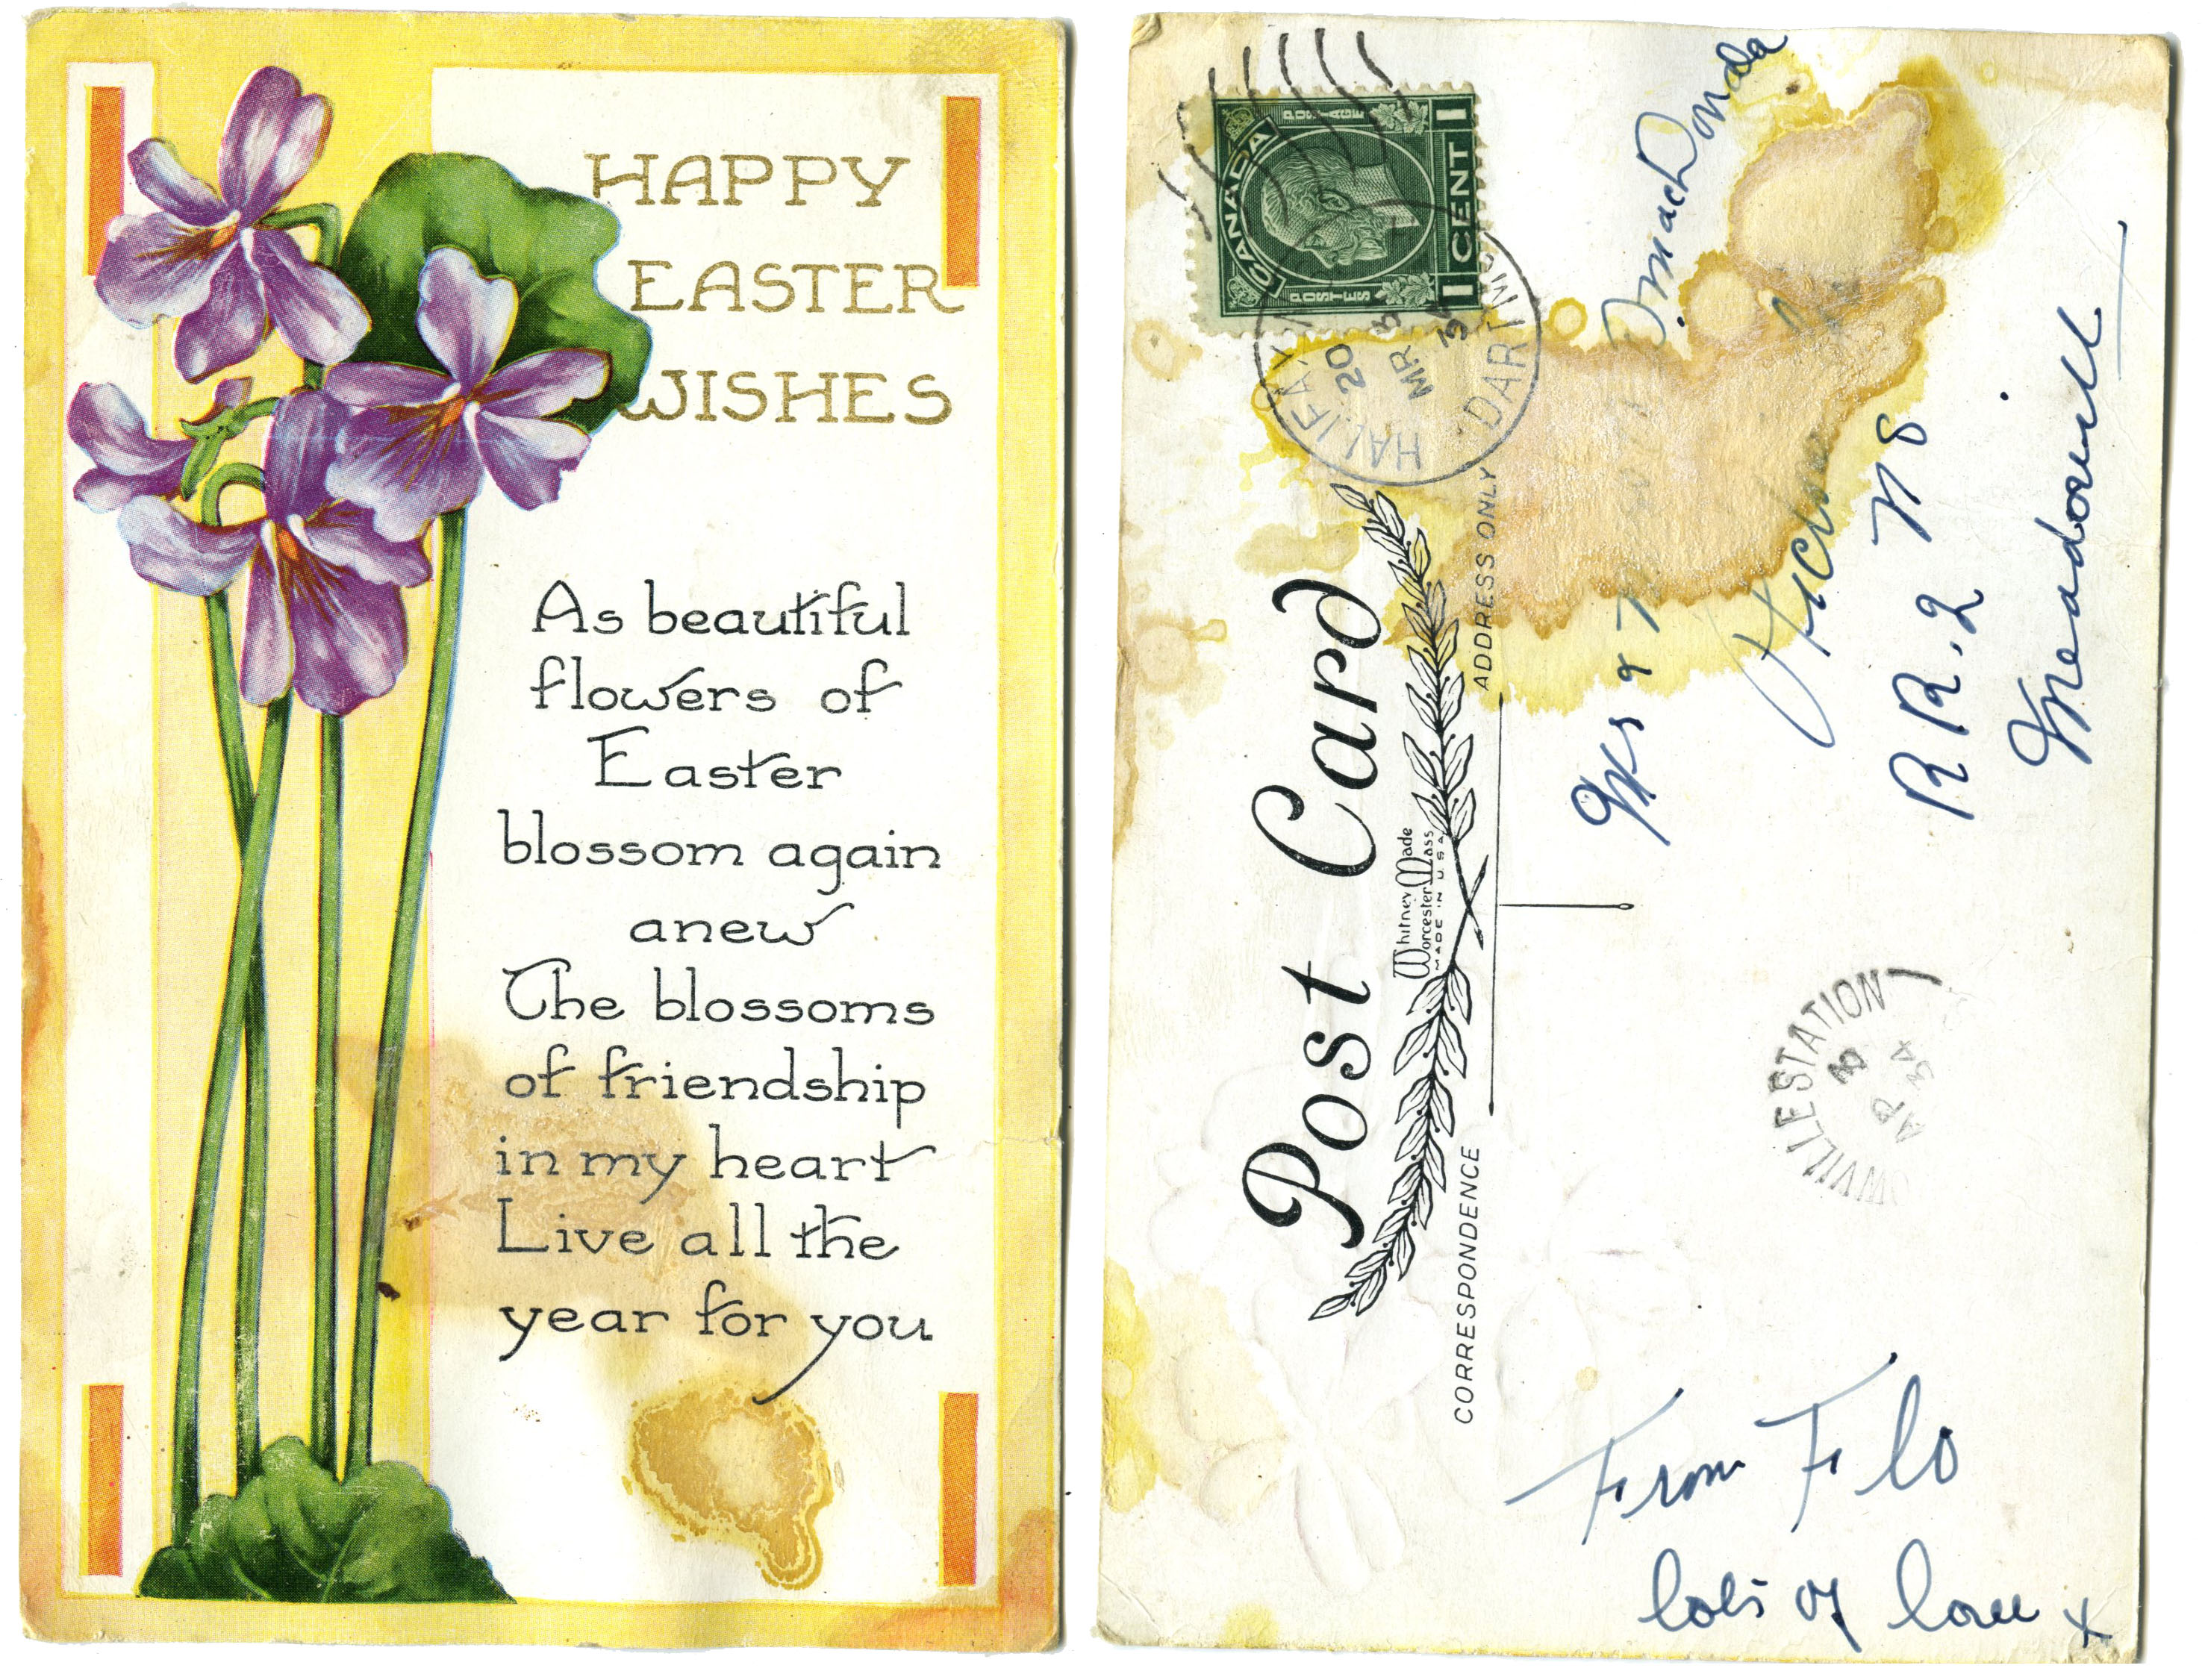 HAPPY
EASTER
WISHES
As beautiful
flowers of
Easter
blossom again
anew
The blossoms
of friendship
in my heart
Live all the
year for you
CANADA
POSTES
POSTAGE
1 CENT 1
HALIFAX
DARTM
20
MR 3
34
Post Card
CORRESPONDENCE
ADDRESS ONLY
Whitney Made
Worcester Mass
MADE IN U.S.A.
MacDonald
R R. 2 N S
Meadowvill
WVILLE STATION
AP 34
From Flo
lots of love x